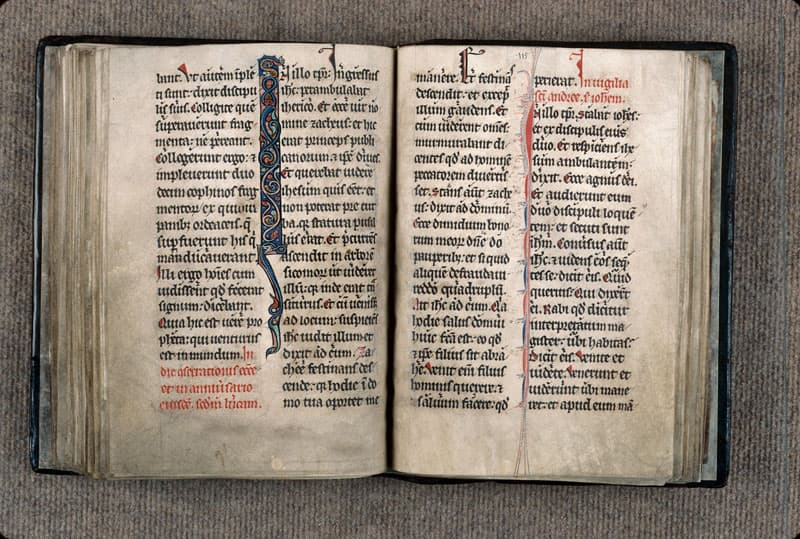 lunt. Ut autem iple
ti sunt: dixit discipu
lis suis. Colligite que
superauerunt frag
menta: ne pereant.
Collegerunt ergo: &
impleuerunt duo
decim cophinos frag
mentor ex quinq
panib; ordeaceis. q
supfuerunt his q
manducauerant.
Illi ergo hoies cum
uidissent qd fecerat
signum: dicebant.
Quia hic est uere pro
pheta: qui uenturus
est in mundum. In
die
et in anniuersario
eiusde. secdm lucam.
In illo tpr: Ingressus
ihc: perambulabat
iherico. Et ecce uir no
mine zacheus: et hic
erat princeps publi
canorum: & ipse diues.
Et querebat uidere
ihesum quis eet: et
non poterat pre tur
ba. qa statura pusil
lus erat. Et pcurres
ascendit in arbore
sicomor ut uideret
illu: qa inde erat tn
siturus. Et cu uenisset
ad locum: suspiciens
ihc uidit illum et
dixit ad eum. Za
chee festinans des
cende: qa hodie i do
mo tua oportet me
manere. Et festinas
descendit: et excep
illum gaudens. Et
cum uiderent omes
murmurabant di
centes qd ad homine
peccatorem diuertis
set. Stans aut zache
us: dixit ad dominu.
Ecce dimidium bono
rum meor dne do
pauperib; et si quid
alique defraudaui
reddo quadruplu.
Ait ihc ad eum. Qia
hodie salus domui
huic fca est: eo qd
& ipse filius sit abra
he. Uenit eni filius
hominis querere &
saluum facere: qd
perierat. In uigilia
sci andree. s. iohem.
In illo tpr: Stabat iohes.
et ex discipulis eius
duo. Et respiciens ihc
sum ambulantem:
dixit. Ecce agnus dei.
Et audierunt eum
duo discipuli loque
tem: et secuti sunt
ihm. Conuersus aut
ihc. & uidens eos seq
tes se: dicit eis. Quid
queritis. Qui dixert
ei. Rabi qd dicitur
interpretatum ma
gister: ubi habitas.
Dicit eis. Uenite et
uidete. Uenerunt et
uiderunt ubi mane
ret: et apud eum ma